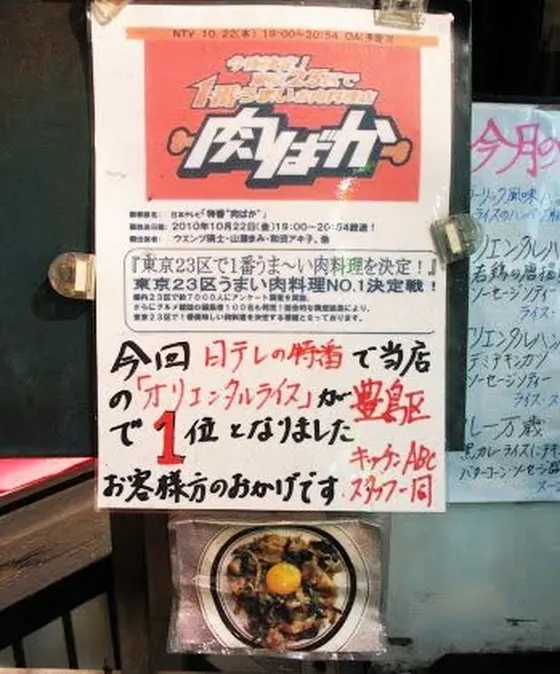 NTV 10.22(金) 19:00~20:54 OA!予定!!
今夜決定!
東京23区で
1番うまい肉料理
肉ばか
番組名: 日本テレビ「特番"肉ばか"」
2010年10月22日(金)19:00~20:54放送!
ウエンツ瑛士・山瀬まみ・和田アキ子、他
『東京23区で1番うま~い肉料理を決定!』
東京23区うまい肉料理NO.1決定戦!
都内23区で約7000人にアンケート調査を実施。
さらにグルメ雑誌の編集者100名も
東京23区で1番美味しい肉料理を決定する番組となっております。
今回 日テレの特番で当店
の「オリエンタルライス」が豊島区
で1位となりました
お客様方のおかげです
キッチンABC
スタッフ一同
今月の
ガーリック風味
ライスのハンバ
リエンタルハ
若鶏の唐揚
ソーセージンティー
ライス
リエンタルハン
デミチキンカツ
ソーセージンティー
ライス・ス
レー万歳
黒カレーライスにチキ
バターコーンソーセージ